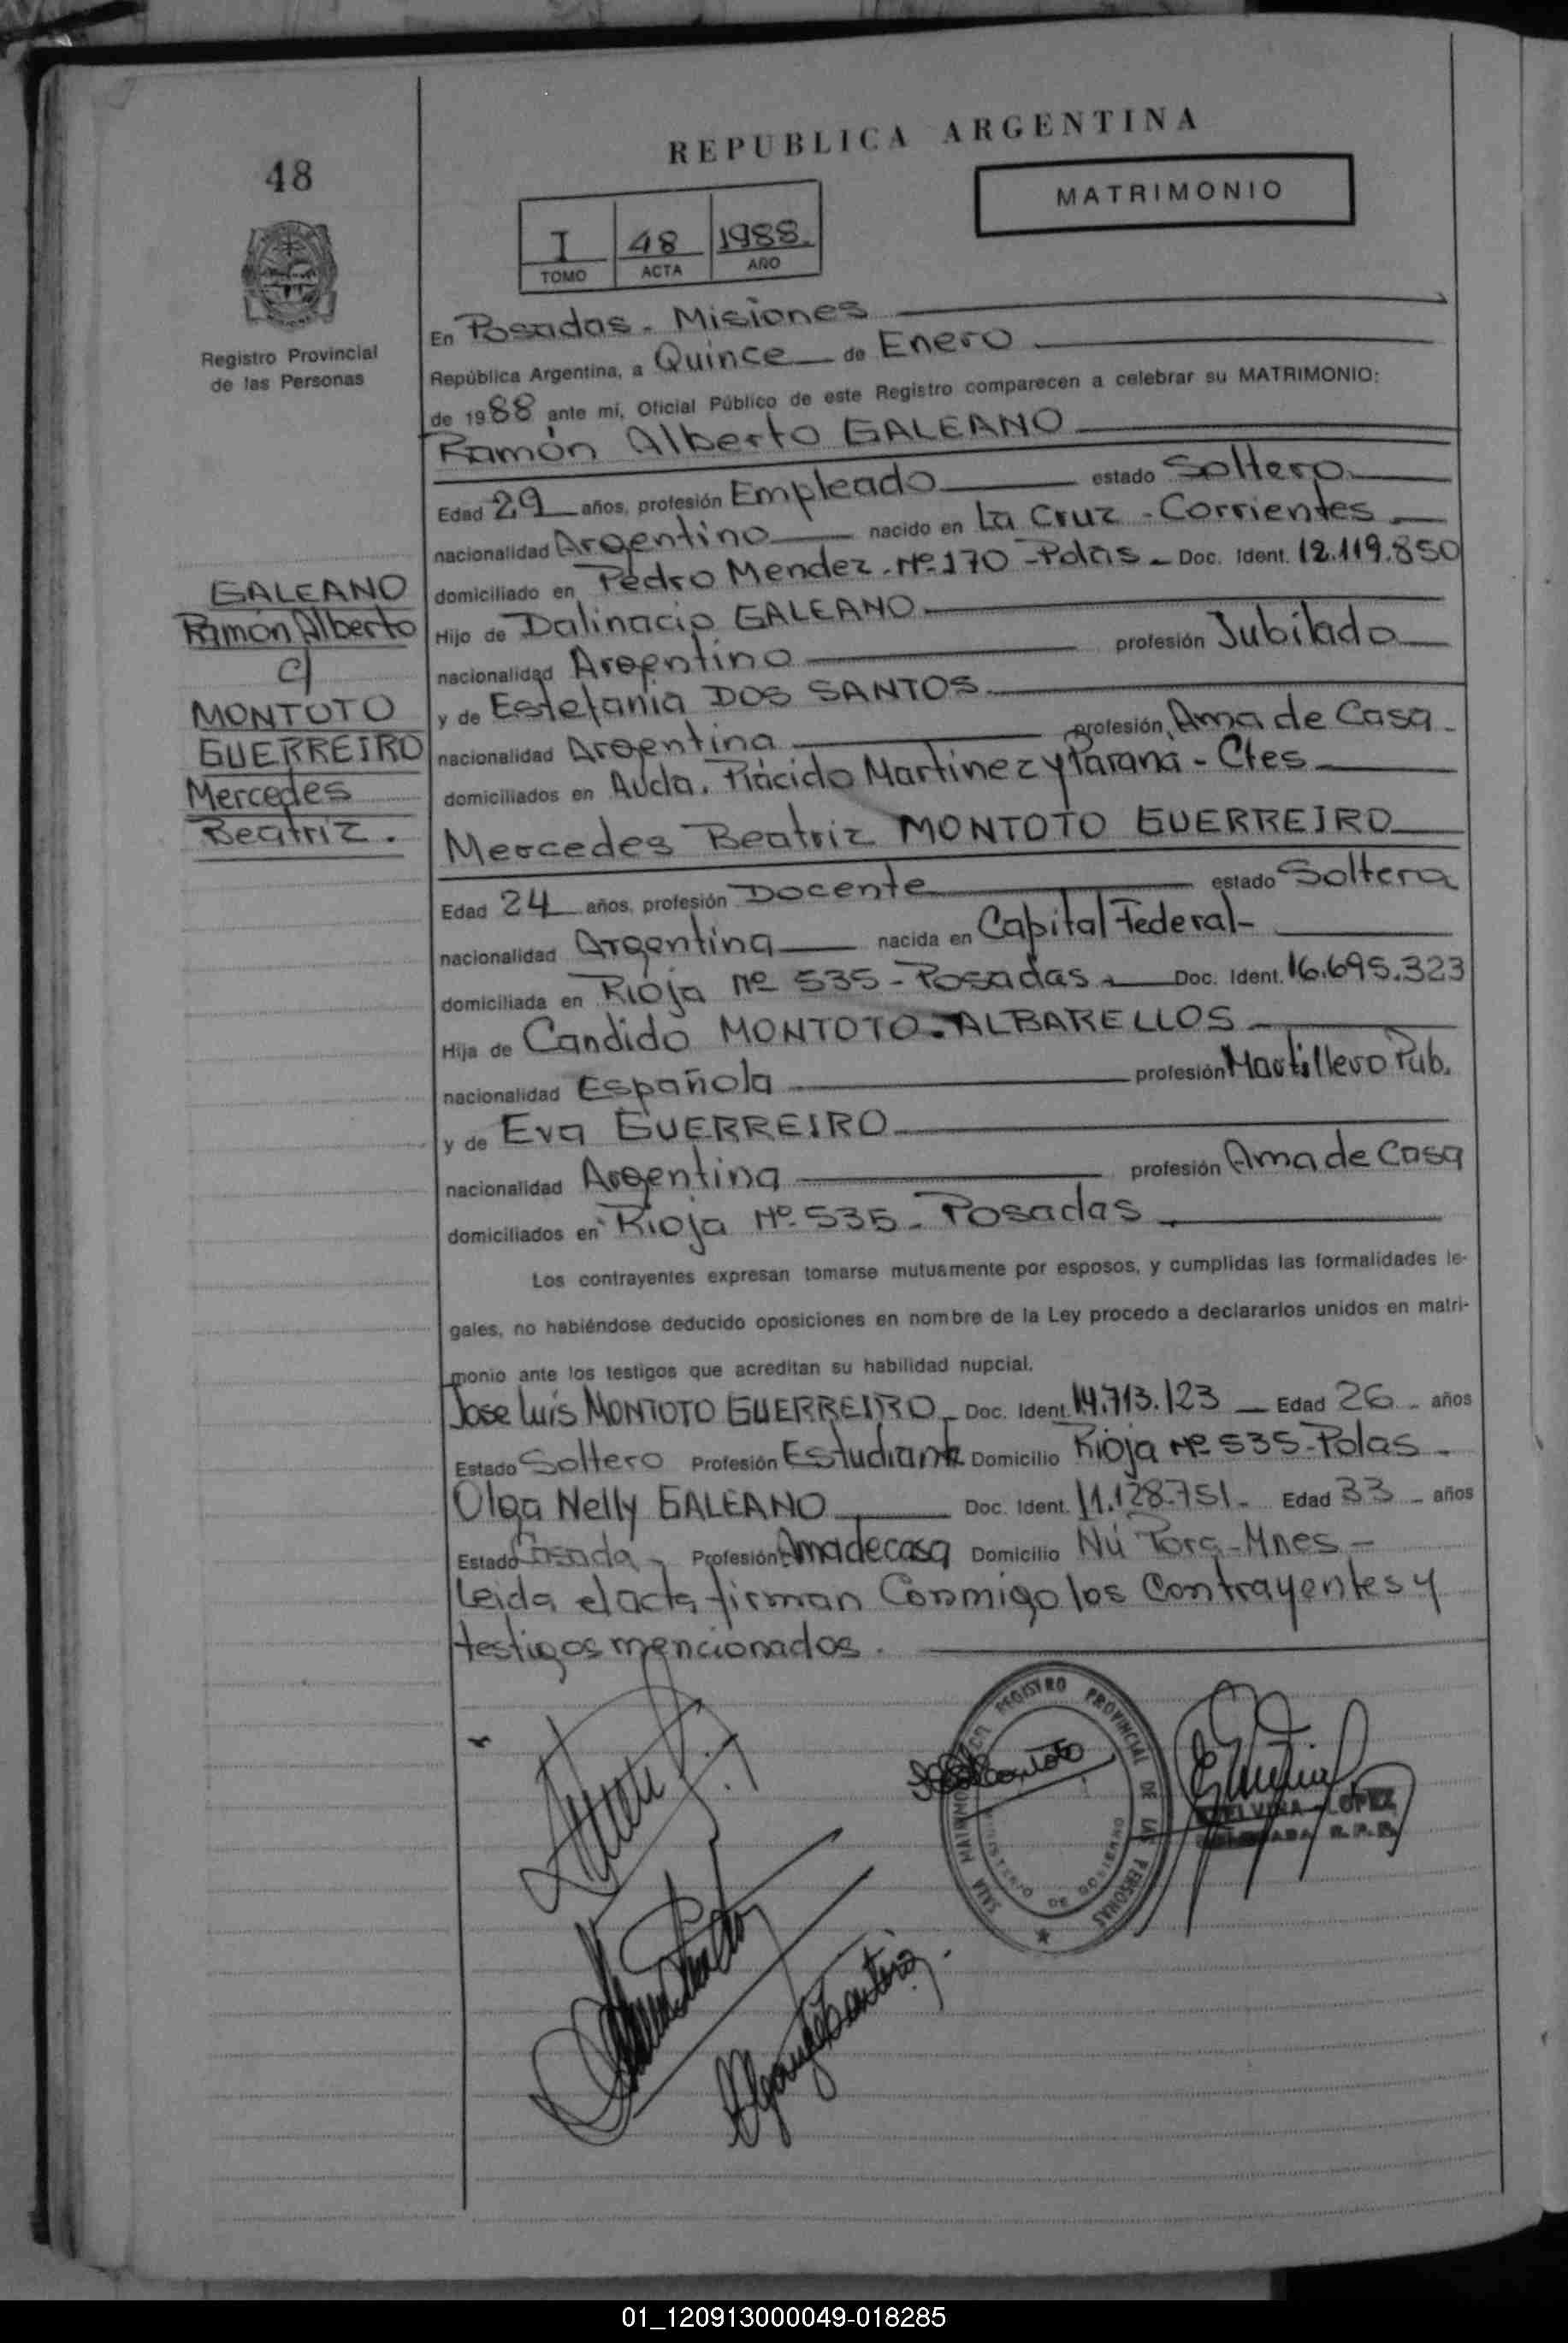 REPUBLICA ARGENTINA
48
MATRIMONIO
I 48 1988.
TOMO ACTA AÑO
Registro Provincial
de las Personas
En Posadas - Misiones
República Argentina, a Quince de Enero
de 1988 ante mí, Oficial Público de este Registro comparecen a celebrar su MATRIMONIO:
Ramón Alberto GALEANO
Edad 29 años, profesión Empleado estado Soltero
nacionalidad Argentino nacido en La Cruz - Corrientes
domiciliado en Pedro Mendez - Nº 170 - Pdas - Doc. Ident. 12.119.850
Hijo de Dalinacio GALEANO
nacionalidad Argentino profesión Jubilado
y de Estefania DOS SANTOS
nacionalidad Argentina profesión Ama de Casa
domiciliados en Avda. Plácido Martinez y Paraná - Ctes
GALEANO
Ramón Alberto
c/
MONTOTO
GUERREIRO
Mercedes
Beatriz.
Mercedes Beatriz MONTOTO GUERREIRO
Edad 24 años, profesión Docente estado Soltera
nacionalidad Argentina nacida en Capital Federal-
domiciliada en Rioja Nº 535 - Posadas - Doc. Ident. 16.695.323
Hija de Candido MONTOTO ALBARELLOS
nacionalidad Española profesión Martillero Pub.
y de Eva GUERREIRO
nacionalidad Argentina profesión Ama de Casa
domiciliados en Rioja Nº 535 - Posadas
Los contrayentes expresan tomarse mutuamente por esposos, y cumplidas las formalidades le-
gales, no habiéndose deducido oposiciones en nombre de la Ley procedo a declararlos unidos en matri-
monio ante los testigos que acreditan su habilidad nupcial.
Jose Luis MONTOTO GUERREIRO - Doc. Ident. 14.713.123 - Edad 26 - años
Estado Soltero Profesión Estudiante Domicilio Rioja Nº 535 - Pdas -
Olga Nelly GALEANO Doc. Ident. 11.128.751 - Edad 33 - años
Estado Casada - Profesión Ama de casa Domicilio Ñú Porá - Mnes -
Leida el acta firman Conmigo los Contrayentes y
testigos mencionados.
REGISTRO PROVINCIAL DE LAS PERSONAS
SALA MATRIMONIO
MINISTERIO DE GOBIERNO
LOPEZ
R.P.P.
01_120913000049-018285